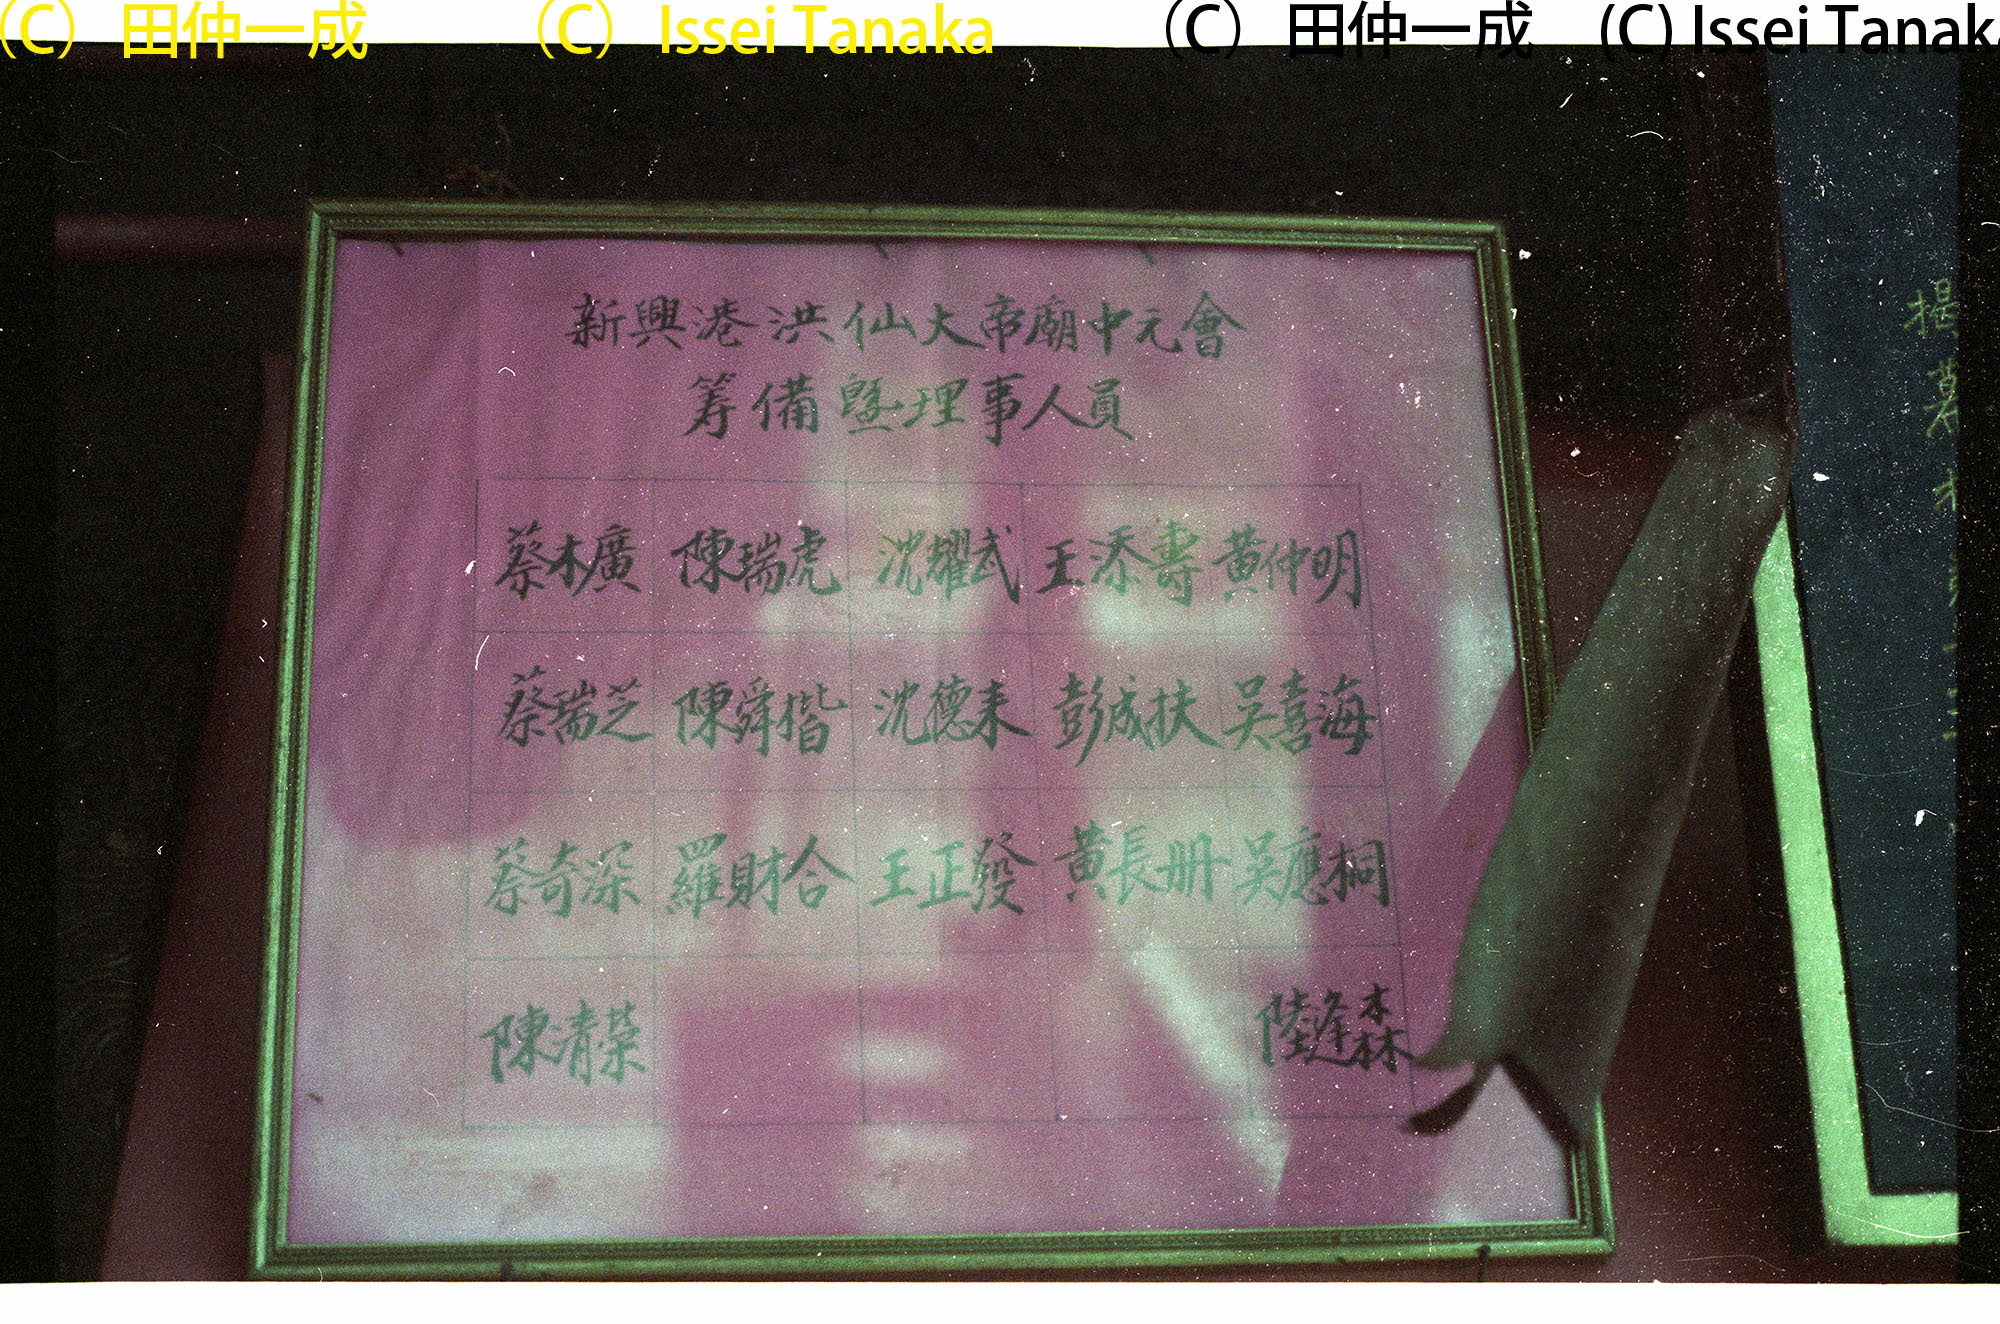 （C） 田仲一成 （C） Issei Tanaka （C） 田仲一成 (C) Issei Tanak
新興港洪仙大帝廟中元會
筹備暨理事人員
蔡木廣 陳瑞虎 沈耀武 王添壽 黃仲明
蔡瑞芝 陳舜楷 沈德來 彭成扶 吳喜海
蔡奇深 羅財合 王正發 黃長册 吳應桐
陳清榮 陸逢森